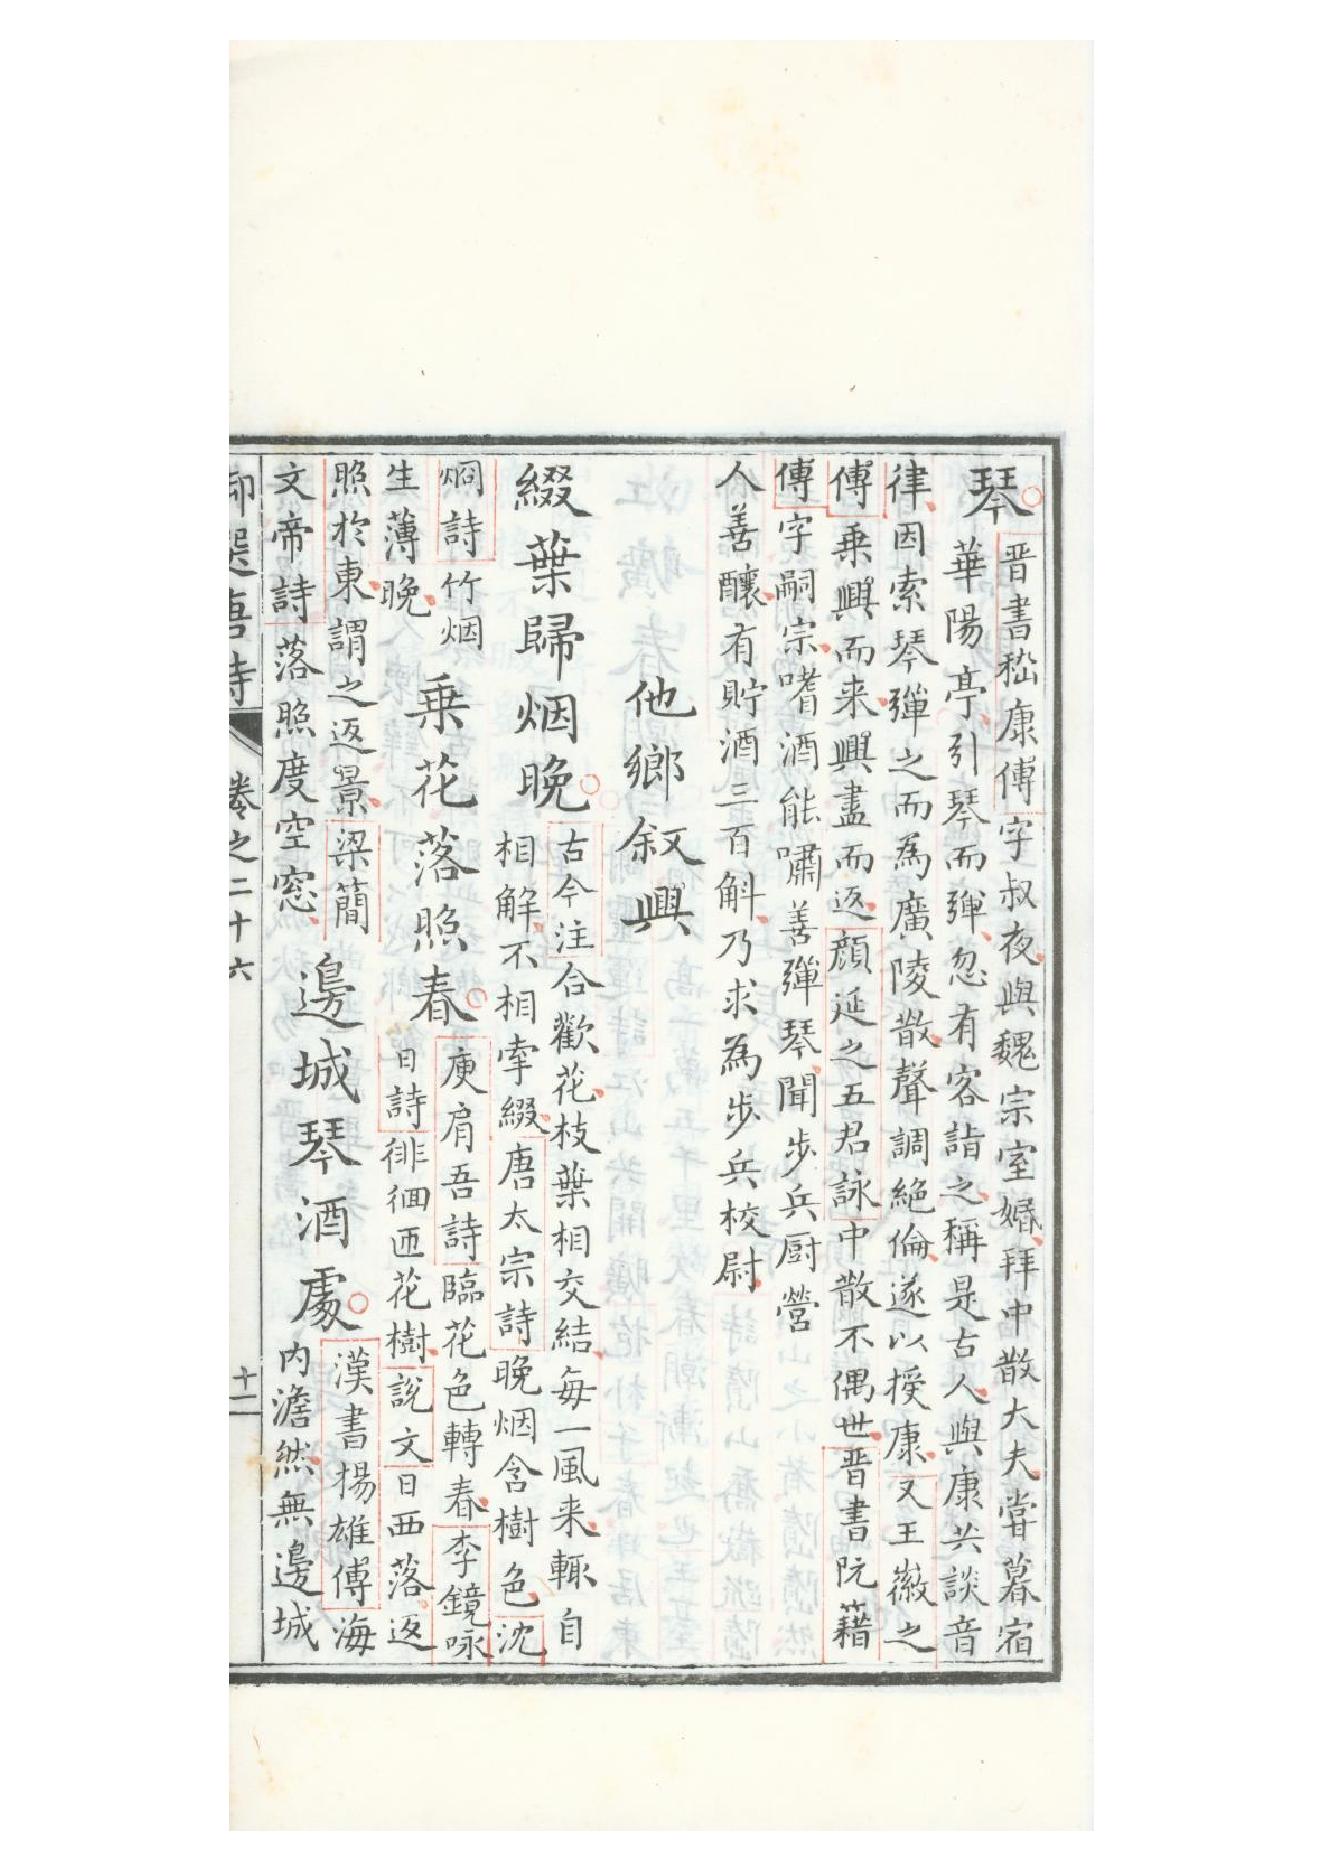 琴
晋書嵇康傅字叔夜與魏宗室婚拜中散大夫甞暮宿
華陽亭引琴而弾忽有客詣之稱是古人與康共談音
律因索琴弾之而為廣陵散聲調絶倫遂以授康又王徽之
傅乗興而来興盡而返顔延之五君詠中散不偶世晋書阮籍
傅字嗣宗嗜酒能嘯善弾琴聞步兵厨營
人善釀有貯酒三百斛乃求為步兵校尉
他鄉叙興
綴葉歸烟晚
古今注合歡花枝葉相交結毎一風来輙自
相解不相牽綴唐太宗詩晚烟含樹色沈
烱詩竹烟
生薄晚
乗花落照春
庾肩吾詩臨花色轉春李鏡咏
日詩徘徊匝花樹說文日西落返
照於東謂之返景梁簡
文帝詩落照度空窓
邊城琴酒處
漢書楊雄傅海
内澹然無邊城
御選唐詩 卷之二十六 十二